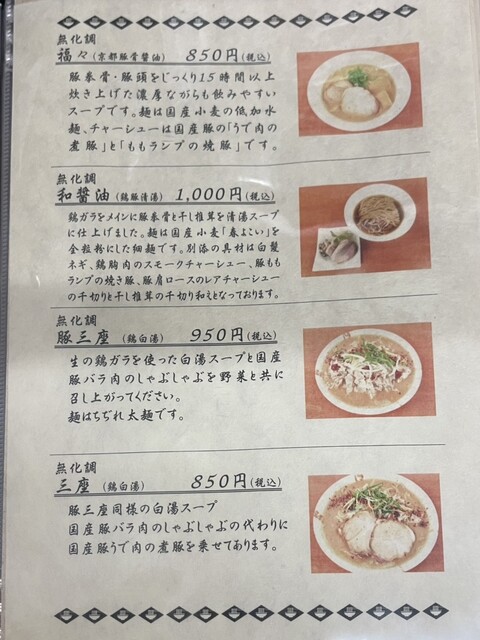 無化調
福々(京都豚骨醤油) 850円(税込)
豚拳骨・豚頭をじっくり15時間以上
炊き上げた濃厚ながらも飲みやすい
スープです。麺は国産小麦の低加水
麺、チャーシューは国産豚の「うで肉の
煮豚」と「ももランプの焼豚」です。
無化調
和醤油(鶏豚清湯) 1,000円(税込)
鶏ガラをメインに豚拳骨と干し椎茸を清湯スープ
に仕上げました。麺は国産小麦「春よこい」を
全粒粉にした細麺です。別添の具材は白髪
ネギ、鶏胸肉のスモークチャーシュー、豚もも
ランプの焼き豚、豚肩ロースのレアチャーシュー
の千切りと干し椎茸の千切り和えとなっております。
無化調
豚三座 (鶏白湯) 950円(税込)
生の鶏ガラを使った白湯スープと国産
豚バラ肉のしゃぶしゃぶを野菜と共に
召し上がってください。
麺はちぢれ太麺です。
無化調
三座 (鶏白湯) 850円(税込)
豚三座同様の白湯スープ
国産豚バラ肉のしゃぶしゃぶの代わりに
国産豚うで肉の煮豚を乗せてあります。